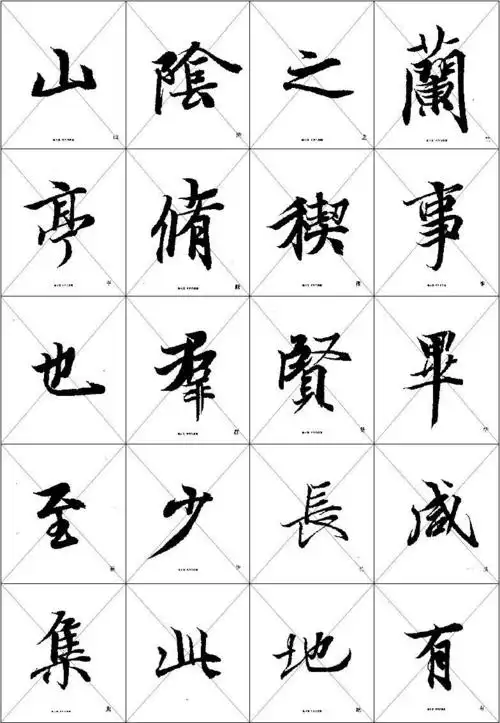 山陰之蘭
亭脩稧事
也羣賢畢
至少長咸
集此地有